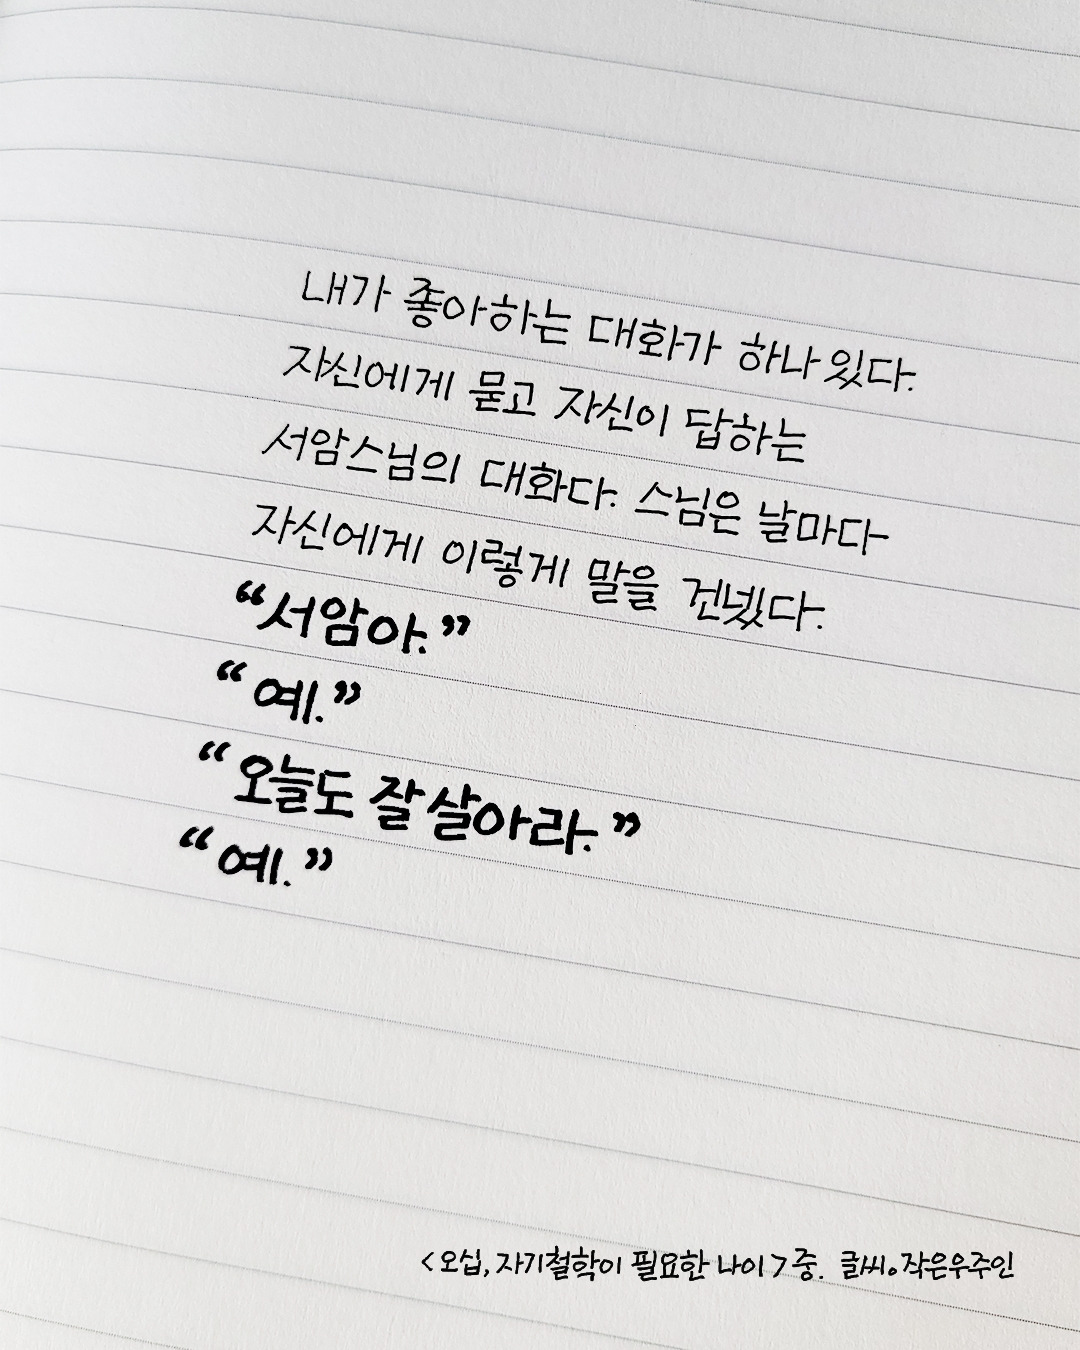 내가 좋아하는 대화가 하나 있다.
자신에게 묻고 자신이 답하는
서암스님의 대화다. 스님은 날마다
자신에게 이렇게 말을 건넸다.
“서암아.”
“예.”
“오늘도 잘 살아라.”
“예.”
<오십, 자기철학이 필요한 나이> 중. 글씨。작은우주인